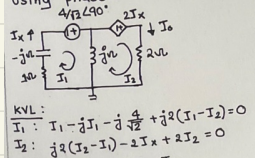 using phase
4/√2∠90°
2Ix
Ix ↑
+
↓ Io
-jΩ
jΩ
2Ω
1Ω
I1
I2
KVL:
I1 : I1 - jI1 - j 4/√2 + j2(I1-I2)=0
I2 : j2(I2-I1) - 2Ix + 2I2 = 0